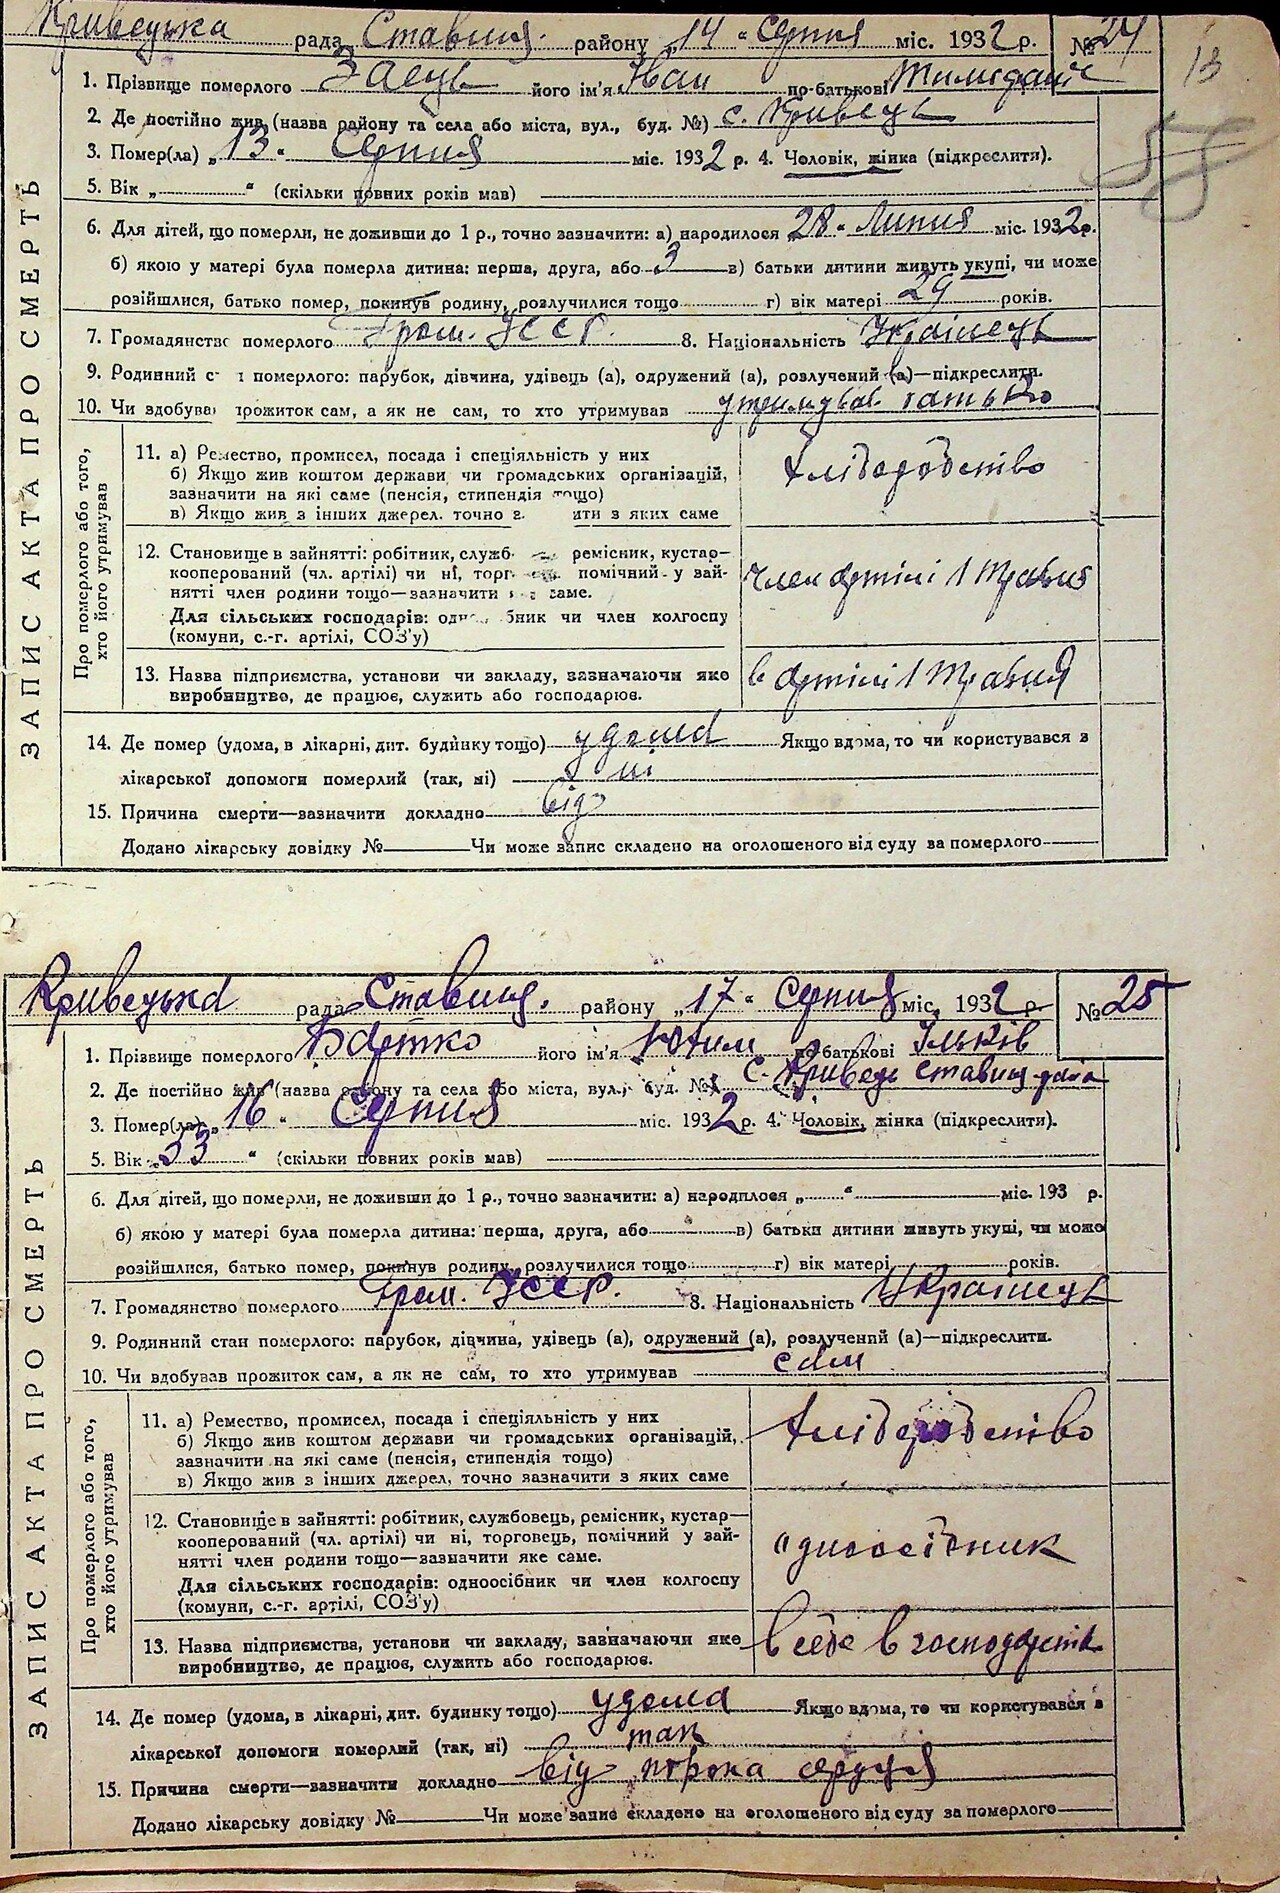 Кривецька рада Ставищ. району „14" Серпня міс. 1932 р. № 24
13
1. Прізвище померлого Заєць його ім'я Іван по-батькові
2. Де постійно жив (назва району та села або міста, вул., буд. №) с. Кривець
3. Помер(ла) „13" Серпня міс. 1932 р. 4. Чоловік, жінка (підкреслити).
5. Вік „ " (скільки повних років мав)
6. Для дітей, що померли, не доживши до 1 р., точно зазначити: а) народилося „28" Липня міс. 1932 р.
б) якою у матері була померла дитина: перша, друга, або 3 в) батьки дитини живуть укупі, чи може
розійшлися, батько помер, покинув родину, розлучилися тощо г) вік матері 29 років.
7. Громадянство померлого Гром. УССР. 8. Національність Українець
9. Родинний с і померлого: парубок, дівчина, удівець (а), одружений (а), розлучений (а)—підкреслити.
10. Чи здобував прожиток сам, а як не сам, то хто утримував утримував батько
ЗАПИС АКТА ПРО СМЕРТЬ
Про померлого або того, хто його утримував
11. а) Ремество, промисел, посада і спеціяльність у них
б) Якщо жив коштом держави чи громадських організацій,
зазначити на які саме (пенсія, стипендія тощо)
в) Якщо жив з інших джерел. точно з ити з яких саме
хліборобство
12. Становище в зайнятті: робітник, службо ремісник, кустар—
кооперований (чл. артілі) чи ні, торг помічний у зай-
нятті член родини тощо—зазначити саме.
Для сільських господарів: одн бник чи член колгоспу
(комуни, с.-г. артілі, СОЗ'у)
член артілі 1 Травня
13. Назва підприємства, установи чи закладу, зазначаючи яке
виробництво, де працює, служить або господарює.
в артілі 1 Травня
14. Де помер (удома, в лікарні, дит. будинку тощо) удома Якщо вдома, то чи користувався з
лікарської допомоги померлий (так, ні) ні
15. Причина смерти—зазначити докладно від
Додано лікарську довідку № Чи може запис складено на оголошеного від суду за померлого
Кривецька рада Ставищ. району „17" Серпня міс. 1932 р. № 25
1. Прізвище померлого Бартко його ім'я Юхим по-батькові Ільків
2. Де постійно жив (назва району та села або міста, вул., буд. №) с. Кривець Ставищ. р-на
3. Помер(ла) „16" Серпня міс. 1932 р. 4. Чоловік, жінка (підкреслити).
5. Вік „53" (скільки повних років мав)
6. Для дітей, що померли, не доживши до 1 р., точно зазначити: а) народилося „ " міс. 193 р.
б) якою у матері була померла дитина: перша, друга, або в) батьки дитини живуть укупі, чи може
розійшлися, батько помер, покинув родину, розлучилися тощо г) вік матері років.
7. Громадянство померлого Гром. УССР. 8. Національність Українець
9. Родинний стан померлого: парубок, дівчина, удівець (а), одружений (а), розлучений (а)—підкреслити.
10. Чи здобував прожиток сам, а як не сам, то хто утримував сам
ЗАПИС АКТА ПРО СМЕРТЬ
Про померлого або того, хто його утримував
11. а) Ремество, промисел, посада і спеціяльність у них
б) Якщо жив коштом держави чи громадських організацій,
зазначити на які саме (пенсія, стипендія тощо)
в) Якщо жив з інших джерел, точно зазначити з яких саме
хліборобство
12. Становище в зайнятті: робітник, службовець, ремісник, кустар—
кооперований (чл. артілі) чи ні, торговець, помічний у зай-
нятті член родини тощо—зазначити яке саме.
Для сільських господарів: одноосібник чи член колгоспу
(комуни, с.-г. артілі, СОЗ'у)
одноосібник
13. Назва підприємства, установи чи закладу, зазначаючи яке
виробництво, де працює, служить або господарює.
в себе в господарстві
14. Де помер (удома, в лікарні, дит. будинку тощо) удома Якщо вдома, то чи користувався з
лікарської допомоги померлий (так, ні) так
15. Причина смерти—зазначити докладно від порока серця
Додано лікарську довідку № Чи може запис складено на оголошеного від суду за померлого